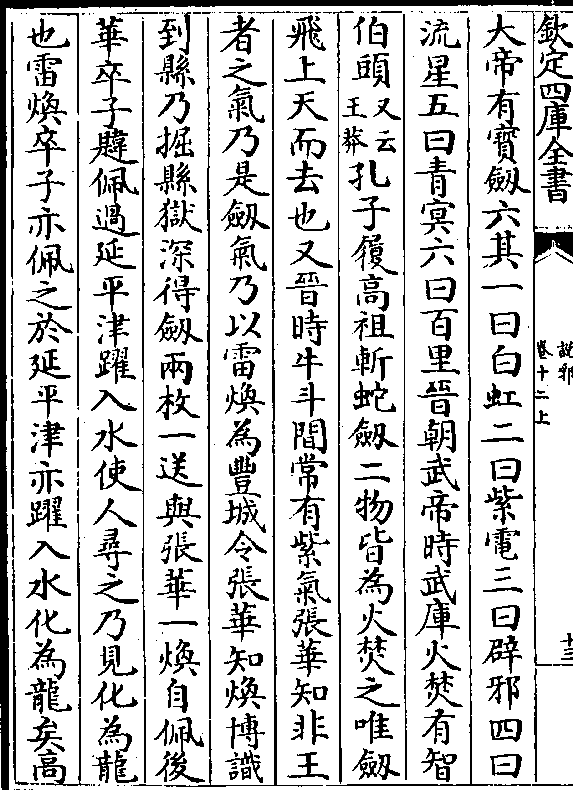 欽定四庫全書
說郛
卷十二上
十三
大帝有寳劔六其一曰白虹二曰紫電三曰辟邪四曰
流星五曰青㝠六曰百里晉朝武帝時武庫火焚有智
伯頭又云王莽孔子履高祖斬蛇劔二物皆為火焚之唯劔
飛上天而去也又晉時牛斗間常有紫氣張華知非王
者之氣乃是劔氣乃以雷煥為豐城令張華知煥博識
到縣乃掘縣獄深得劔兩枚一送與張華一煥自佩後
華卒子韙佩過延平津躍入水使人尋之乃見化為龍
也雷煥卒子亦佩之於延平津亦躍入水化為龍矣高